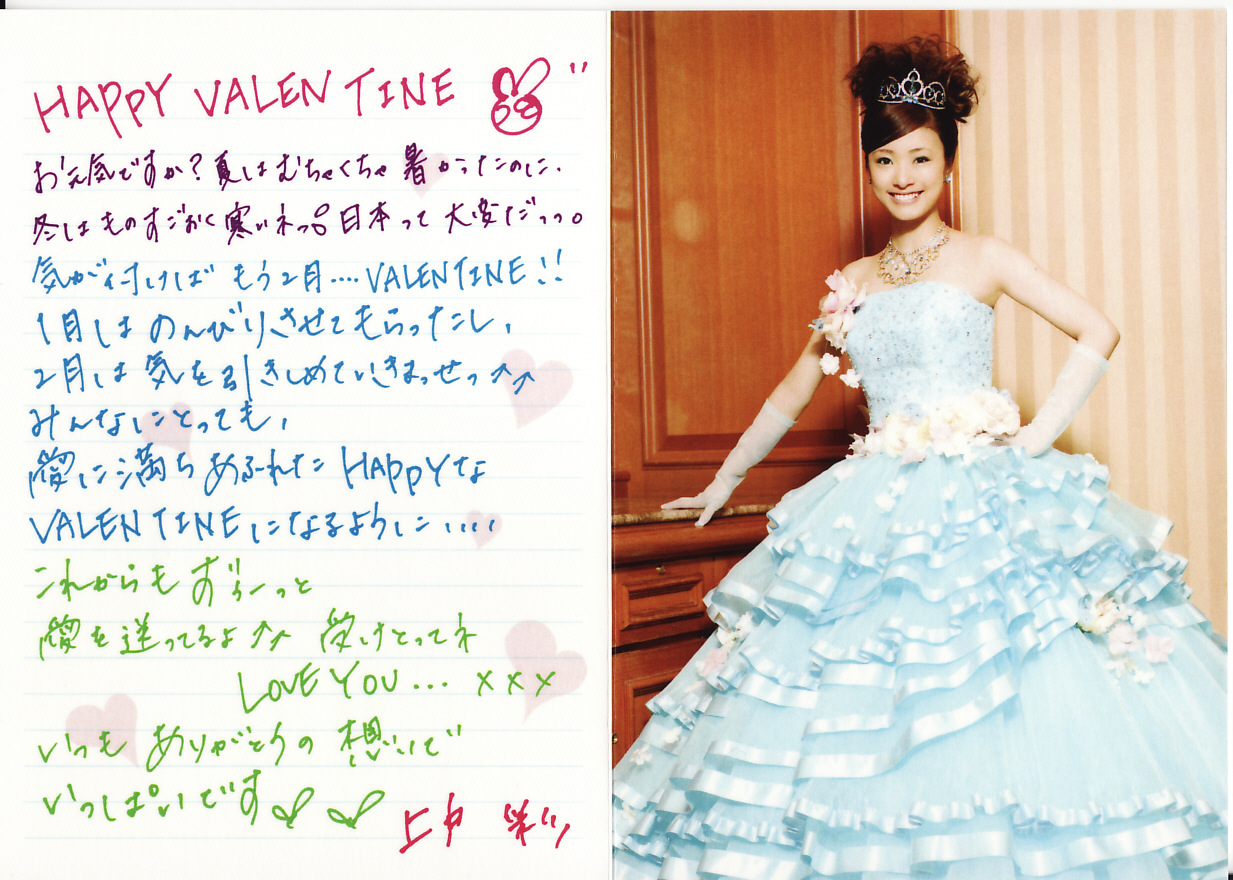 HAPPY VALENTINE
お元気ですか？夏はむちゃくちゃ暑かったのに、
冬はものすごおく寒いネっ。日本って大変だっっ。
気が付けばもう2月....VALENTINE!!
1月はのんびりさせてもらったし、
2月は気を引きしめていきまっせっ↑↑
みんなにとっても、
愛に満ちあふれたHAPPYな
VALENTINEになるように、、、、
これからもずぅーっと
愛を送ってるよ↑↑ 受けとってネ
LOVE YOU... ×××
いつもありがとうの想いで
いっぱいです